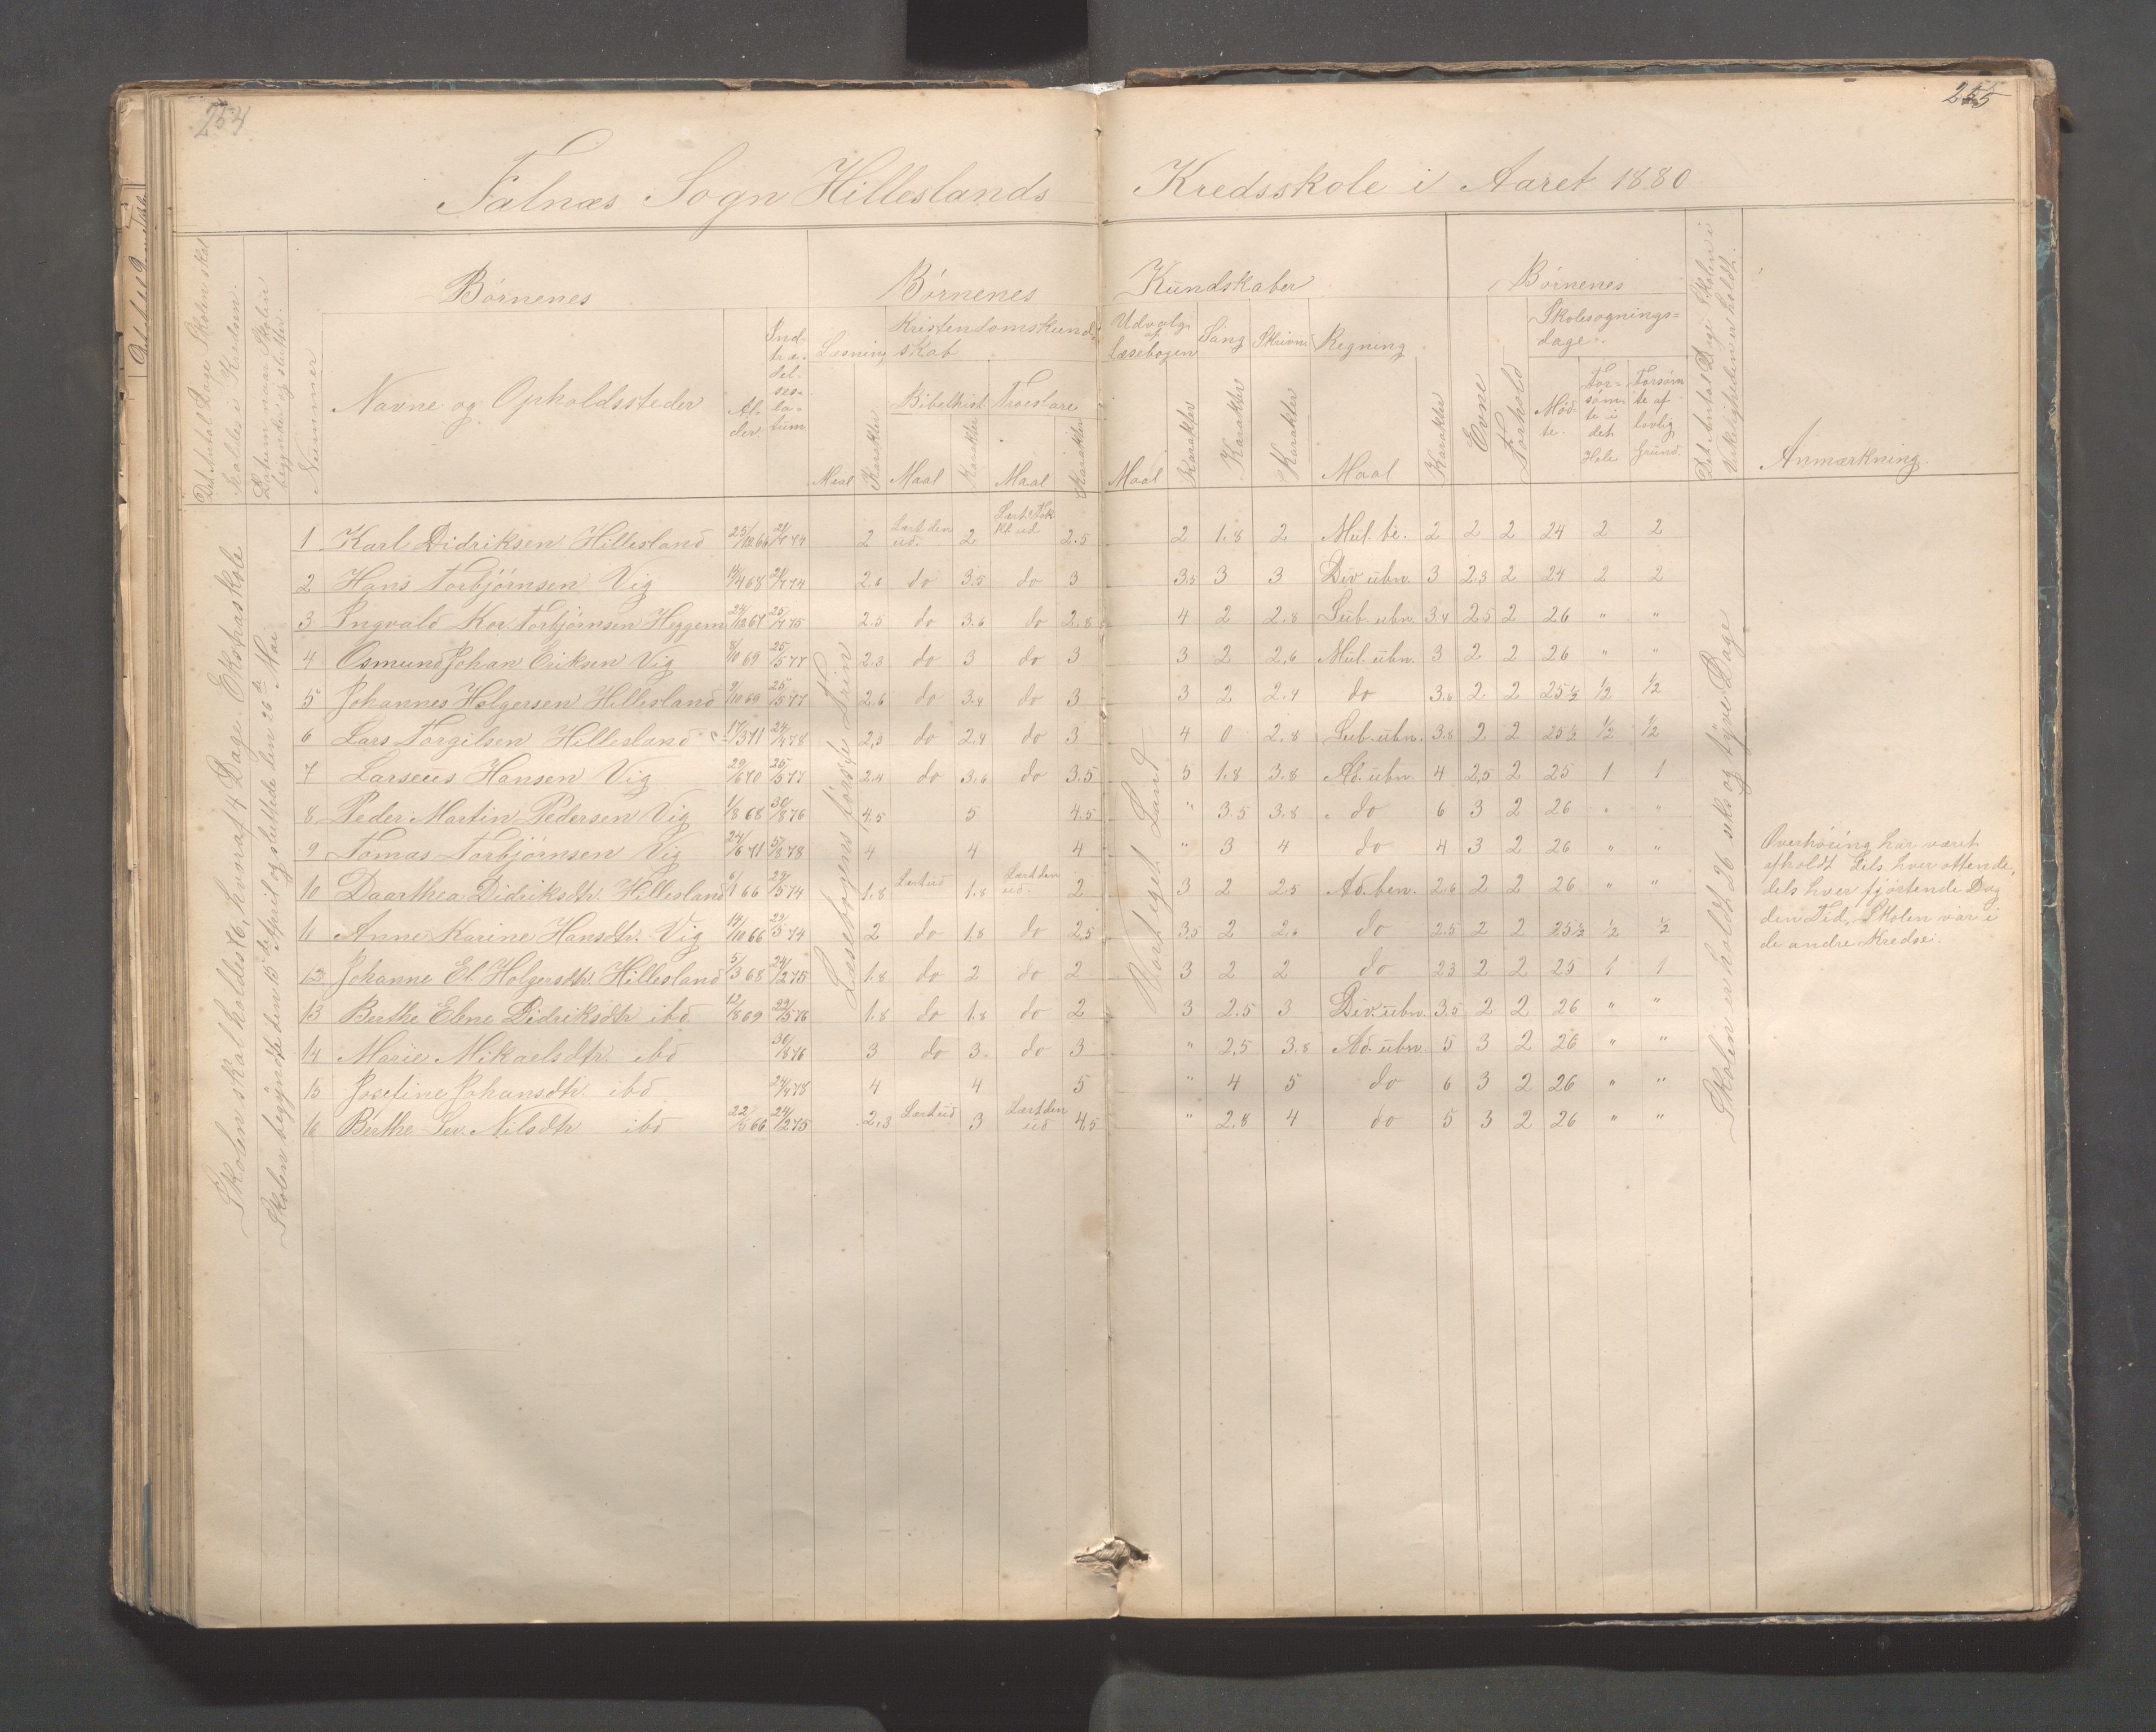 254
255
Falnæs Sogn Hilleslands Kredsskole i Aaret 1880
Det Antal Dage Skolen skal holdes i Kredsen.
Datum naar Skolen begyndes og slutter.
Nummer
Børnenes
Navne og Opholdssteder
Al-
der.
Ind-
træ-
del-
ses-
da-
tum.
Børnenes Kundskaber
Læsning
Kristendomskund-
skab
Bibelhist.
Troeslære
Maal
Karakter
Maal
Karakter
Maal
Karakter
Udvalg
af
Læsebogen
Sang
Skrivn.
Regning
Maal
Karakter
Karakter
Karakter
Maal
Karakter
Børnenes
Evne
Forhold
Skolesøgnings=
dage.
Mød-
te.
For=
søm-
te i
det
Hele
Forsøm
te af
lovlig
Grund.
Det Antal Dage Skolen i Virkeligheden er holdt.
Anmærkning.
Skolen skal holdes 6, hvoraf 4 Dage Ekstraskole
Skolen begyndte den 15de April og sluttede den 26de Mai
Læsebogens første Trin
Korteget Land
Skolen er holdt 26 seks og tyve Dage
1 Karl Didriksen Hillesland 25/12 66 21/7 74 2 Lært den ud. 2 Lært Tok. kl. ud 2.5 2 1.8 2 Mul. be. 2 2 2 24 2 2
2 Hans Torbjørnsen Vig 14/4 68 21/7 74 2.6 do 3.5 do 3 3.5 3 3 Div ubn. 3 2.3 2 24 2 2
3 Ingvald Kor. Torbjørnsen Heggem 24/12 67 25/7 75 2.5 do 3.6 do 2.8 4 2 2.8 Sub. ubn. 3.4 2.5 2 26 " "
4 Osmund Johan Eriksen Vig 8/10 69 25/5 77 2.3 do 3 do 3 3 2 2,6 Mul. ubn. 3 2 2 26 " "
5 Johannes Holgersen Hillesland 9/10 69 25/5 77 2.6 do 3.4 do 3 3 2 2.4 do 3.6 2 2 25½ ½ ½
6 Lars Torgilsen Hillesland 17/3 71 24/4 78 2,3 do 2.4 do 3 4 0 2.8 Sub. ubn. 3.8 2 2 25½ ½ ½
7 Larseus Hansen Vig 29/6 70 25/5 77 2.4 do 3.6 do 3.5 5 1.8 3.8 Ad. ubn. 4 2,5 2 25 1 1
8 Peder Martin Pedersen Vig 1/8 68 30/8 76 4,5 5 4.5 " 3.5 3.8 do 6 3 2 26 " "
9 Tomas Torbjørnsen Vig 24/6 71 5/8 78 4 4 4 " 3 4 do 4 3 2 26 " "
10 Daarthea Didriksdtr. Hillesland 6/1 66 29/5 74 1.8 Lært ud 1.8 Lært den ud. 2 3 2 2.5 Ad. ben. 2.6 2 2 26 " "
11 Anne Karine Hansdtr. Vig 14/10 66 29/5 74 2 do 1.8 do 2,5 3.5 2 2.6 do 2.5 2 2 25½ ½ ½
12 Johanne El. Holgersdtr. Hillesland 5/3 68 24/2 75 1.8 do 2 do 2 3 2 2 do 2.3 2 2 25 1 1
13 Berthe Elene Didriksdtr ibd. 12/8 69 22/5 76 1.8 do 1.8 do 2 3 2.5 3 Div. ubn. 3,5 2 2 26 " "
14 Marie Mikaelsdtr. ibd 30/8 76 3 do 3. do 3 " 2,5 3.8 Ad. ubn 5 3 2 26 " "
15 Josefine Johansdtr. ibd. 24/4 78 4 4 5 " 4 5 do 6 3 2 26 " "
16 Berthe Ser. Nilsdtr ibd 22/5 66 24/2 75 2,3 Lært ud 3 Lært den ud 4,5 " 2,8 4 do 5 3 2 26 " "
Overhøring har været
afholdt dels hver ottende,
dels hver fjortende Dag
den Tid, Skolen var i
de andre Kredse.